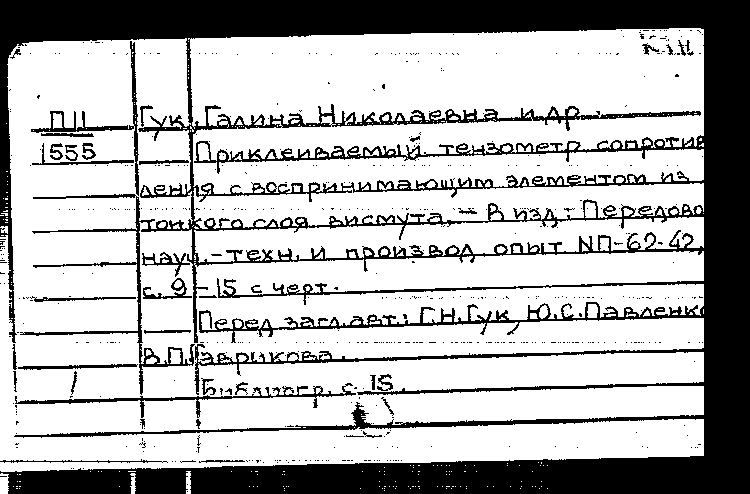 П11 Гук, Галина Николаевна и др.
1555 Приклеиваемый тензометр сопротив
ления с воспринимающим элементом из
тонкого слоя висмута. – В изд: Передово
науч.-техн. и производ опыт №П-62-42,
с. 9-15 с черт.
Перед загл.авт.: Г.Н.Гук, Ю.С.Павленко
В.П.Гаврикова.
Библиогр. с. 15.